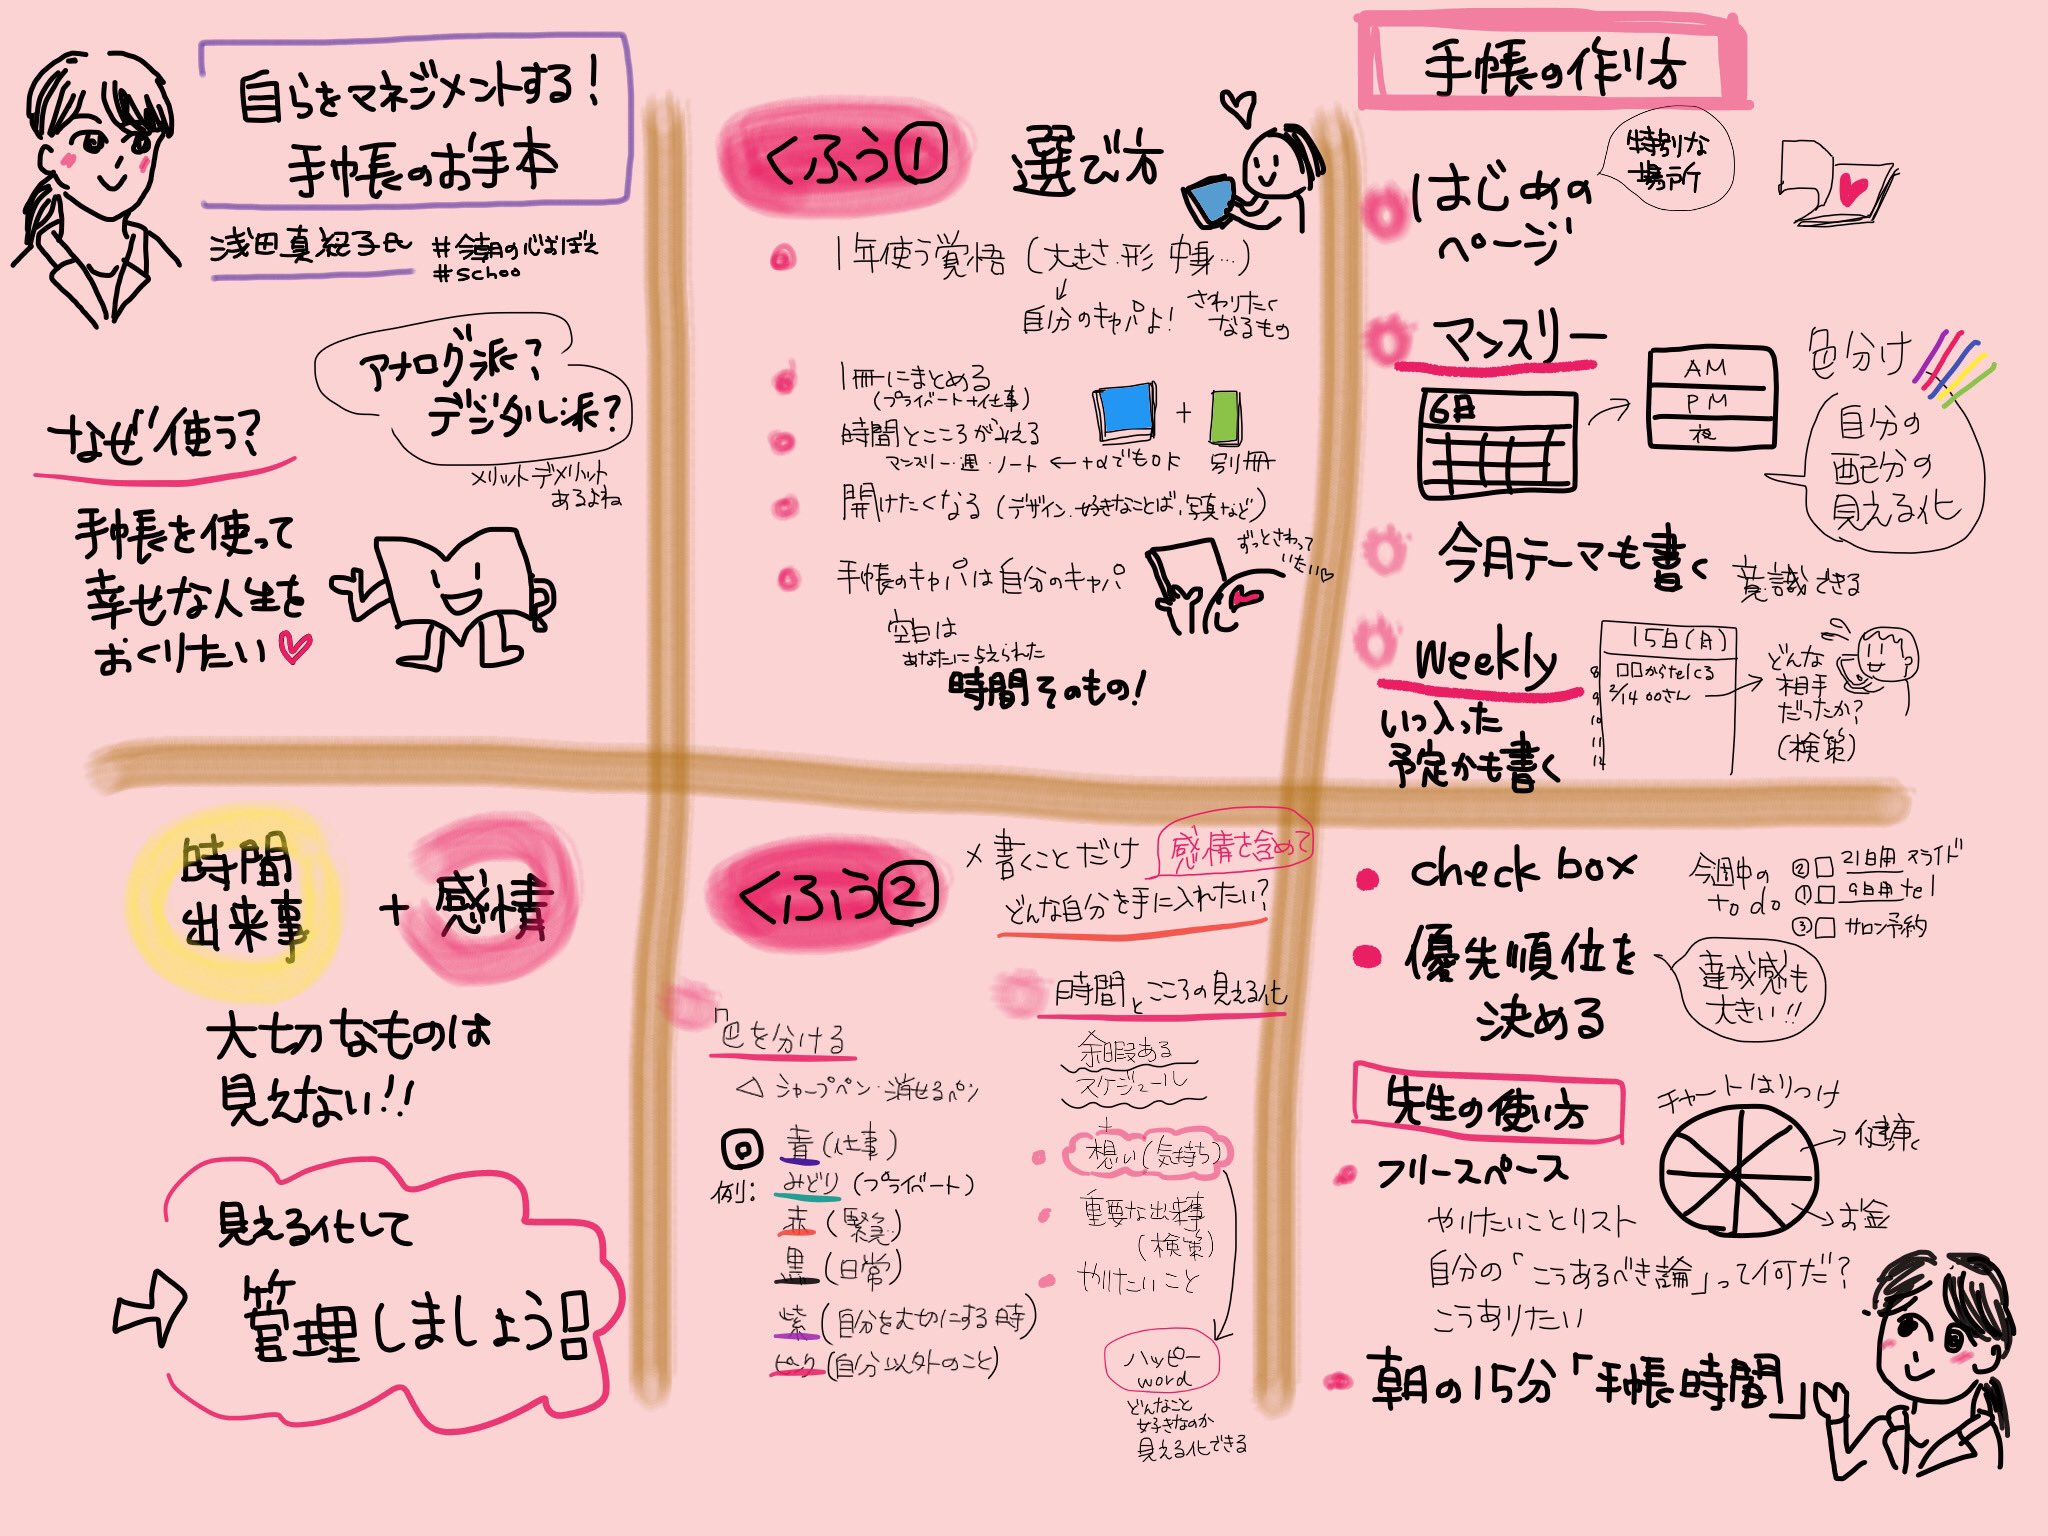 自らをマネジメントする!
手帳のお手本
浅田真紀子氏
#今朝の心おぼえ
#schoo
アナログ派?
デジタル派?
メリットデメリット
あるよね
なぜ使う?
手帳を使って
幸せな人生を
おくりたい
くふう① 選び方
1年使う覚悟(大きさ・形 中身…)
自分のキャパよ!
さわりたく
なるもの
1冊にまとめる
(プライベート+仕事)
時間とこころがみえる
マンスリー・週・ノート ← +αでもOK
+
別冊
開けたくなる(デザイン・好きなことば・写真など)
手帳のキャパは自分のキャパ
ずっとさわって
いたい
空白は
あなたに与えられた
時間そのもの!
手帳の作り方
はじめの
ページ
特別な
場所
マンスリー
6月
AM
PM
夜
色分け
自分の
配分の
見える化
今月テーマも書く
意識できる
Weekly
いつ入った
予定かも書く
15日(月)
8 □□からtelくる
9 2/14 ○○さん
10
11
12
どんな
相手
だったか?
(検索)
時間
出来事
+ 感情
大切なものは
見えない!!
見える化して
管理しましょう!!
くふう②
× 書くことだけ
感情を含めて
どんな自分を手に入れたい?
色を分ける
△ シャープペン・消せるペン
◎
例:
青(仕事)
みどり(プライベート)
赤(緊急)
黒(日常)
紫(自分を大切にする時)
ピンク(自分以外のこと)
時間とこころの見える化
余暇ある
スケジュール
+
想い(気持ち)
重要な出来事
(検索)
やりたいこと
ハッピー
word
どんなこと
好きなのか
見える化できる
check box
今週中の
to do
②□ 21日用 スライド
①□ 9日用 tel
③□ サロン予約
優先順位を
決める
達成感も
大きい!!
先生の使い方
チャートはりつけ
健康
お金
フリースペース
やりたいことリスト
自分の「こうあるべき論」って何だ?
こうありたい
朝の15分「手帳時間」